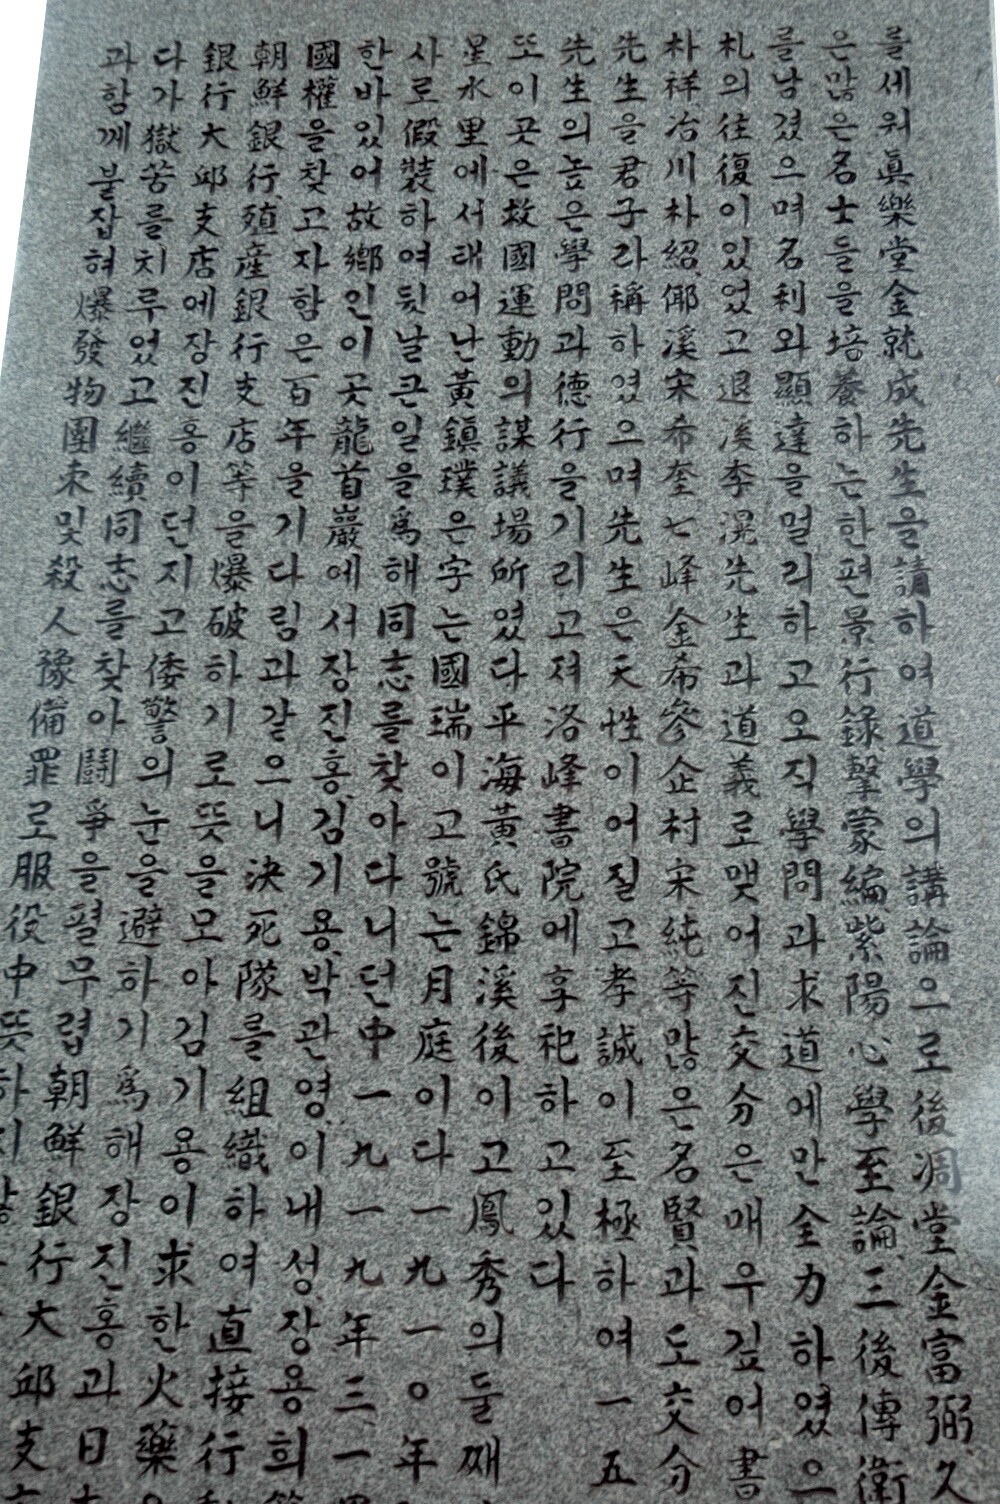 를세워眞樂堂金就成先生을請하여道學의講論으로後凋堂金富弼、久
은많은名士들을培養하는한편景行錄、擊蒙編、紫陽心學至論、三後傳、衛
를남겼으며名利와顯達을멀리하고오직學問과求道에만全力하였으
札의往復이있었고退溪李滉先生과道義로맺어진交分은매우깊어書
朴祥、冶川朴紹、倻溪宋希奎、七峰金希參、企村宋純等많은名賢과도交分
先生을君子라稱하였으며先生은天性이어질고孝誠이至極하여一五
先生의높은學問과德行을기리고져洛峰書院에享祀하고있다
또이곳은救國運動의謀議場所였다平海黃氏錦溪後이고鳳秀의둘째
星水里에서태어난黃鎭璞은字는國瑞이고號는月庭이다一九一〇年
사로假裝하여뒷날큰일을爲해同志를찾아다니던中一九一九年三一
한바있어故鄕인이곳龍首巖에서장진홍、김기용、박관영、이내성、장용희
國權을찾고자함은百年을기다림과같으니決死隊를組織하여直接行
朝鮮銀行、殖産銀行支店等을爆破하기로뜻을모아김기용이求한火藥
銀行大邱支店에장진홍이던지고倭警의눈을避하기爲해장진홍과日
다가獄苦를치루었고繼續同志를찾아鬪爭을펼무렵朝鮮銀行大邱支
과함께붙잡혀爆發物團束및殺人豫備罪로服役中뜻